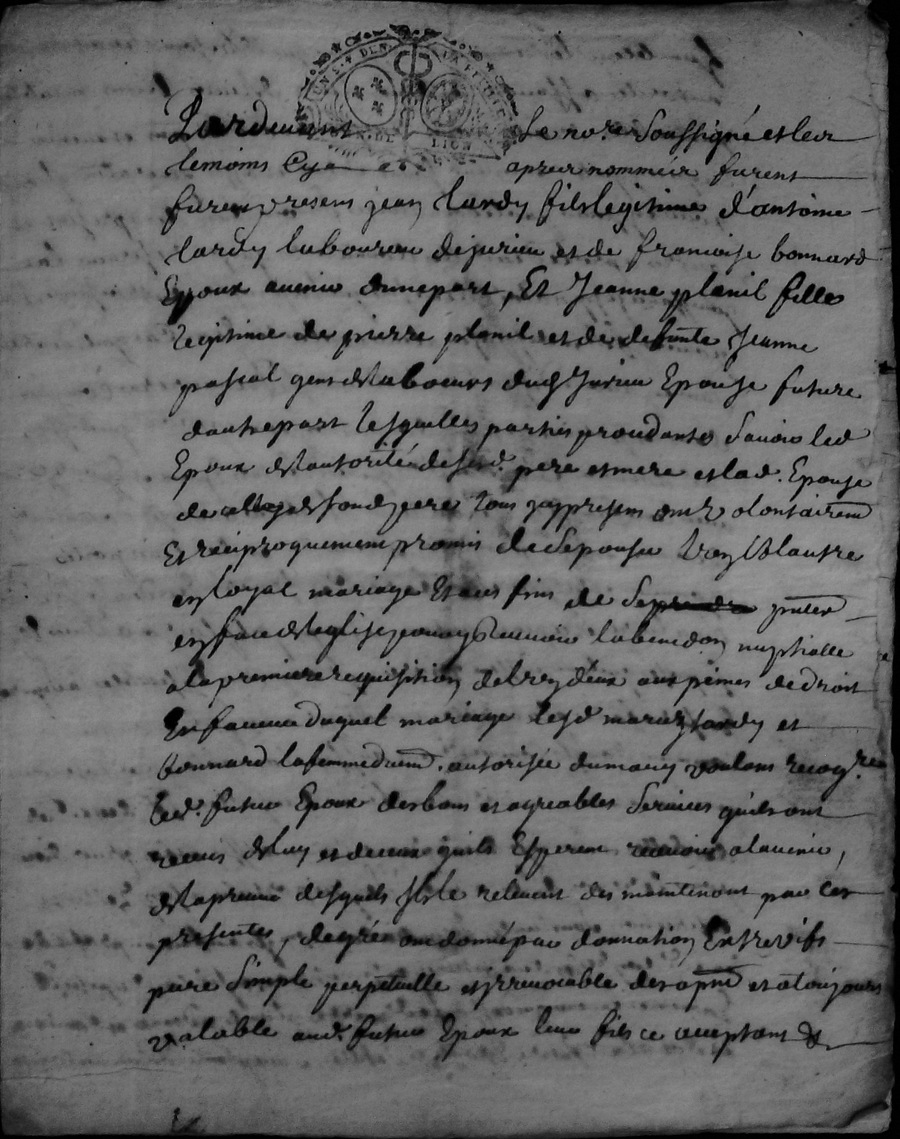 Pardevant Le no.re Soussigné et les
temoins Cy apres nommés furent
furen presens jean tardy fils legitime d'antoine
tardy laboureur de jurieu et de francoise bonnard
Epoux avenir dunepart, Et Jeanne planil fille
legitime de pierre planil et de defunte Jeanne
pascal gens de labeurs dud Jurieu Epouse future
dautrepart lesquelles parties procedantes Savoir led
Epoux de lautorité de sesd. pere et mere et lad. Epouse
de celle de sond pere tous jcy presens ont volontairem
Et reciproquement promis de sepouser Lun Lautre
en loyal mariage Et aux fins de Se pnter
en face de leglise pour y Recevoir la benedon nuptialle
ala premiere requisition de lun deux aux peines de droit
En faveur duquel mariage lesd mariez tardy et
bonnard la femme duem. autorisée du mary voulans recog.re
led. futur Epoux des bons et agreables Services quils ont
receus de luy et de ceux quils Esperent recevoir alavenir,
de la preuve desquels Ils le relevent des maintenant par ces
presentes, de gré ont donné par donnation Entrevifs
pure Simple perpetuelle et jrrevocable des apnt et a toujours
valable aud. futur Epoux leur fils ce acceptant &